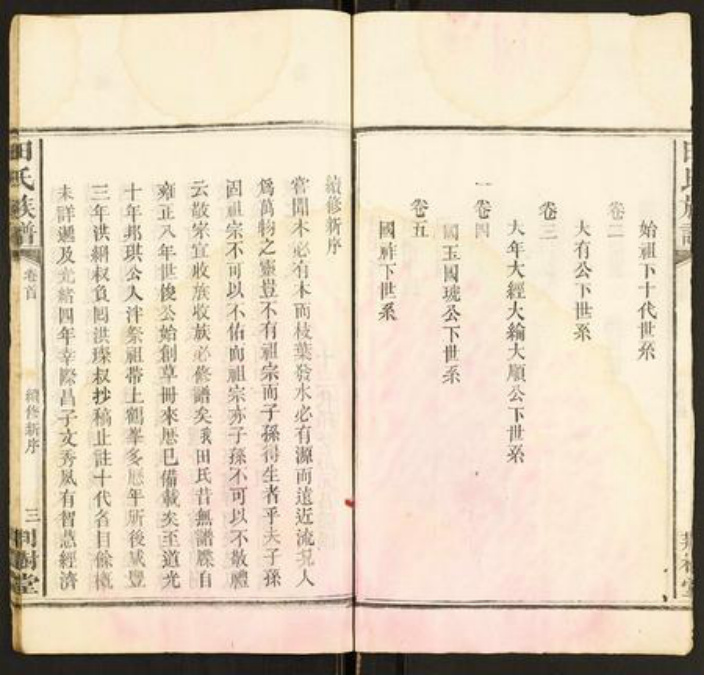 始祖下十代世系
卷二
大有公下世系
卷三
大年大經大綸大順公下世系
卷四
國玉國琥公下世系
卷五
國祚下世系
續修新序
嘗聞木必有本而枝葉發水必有源而遠近流況人
爲萬物之靈豈不有祖宗而子孫得生者乎夫子孫
因祖宗不可以不佑而祖宗亦子孫不可以不敬禮
云敬宗宜收族收族必修譜矣我田氏昔無譜牒自
雍正八年世俊公始創草冊來歷已備載矣至道光
十年邦琪公入泮祭祖帶上鶴峯多歷年所後咸豐
三年洪綱叔負囘洪璨叔抄稿止註十代各目餘概
未詳遡及光緒四年幸際昌子文秀夙有智慧經濟
田氏族譜
卷首
續修新序
三
荆樹堂